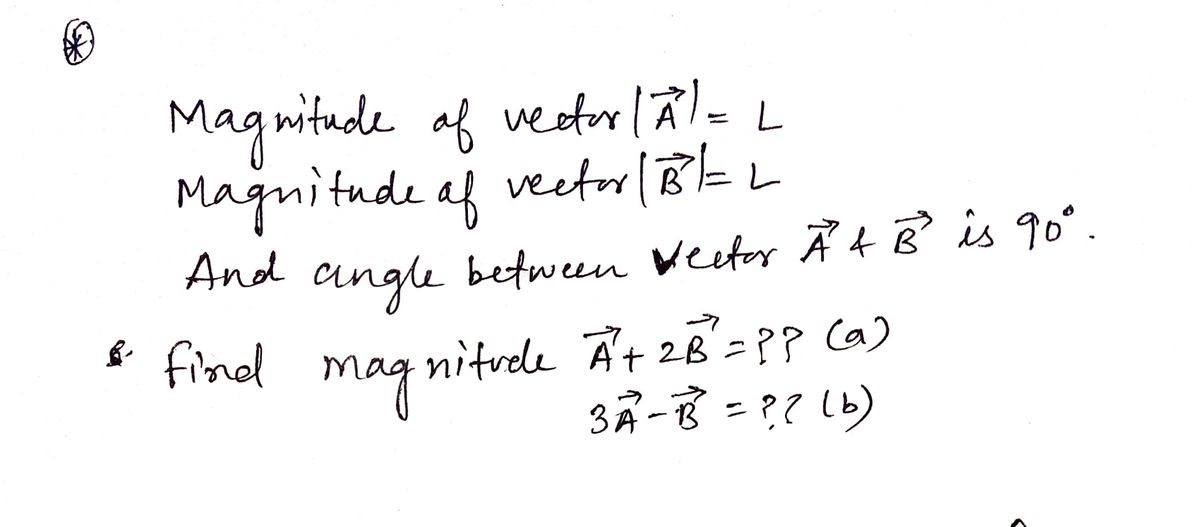 Magnitude of vector |A⃗| = L
Magnitude of vector |B⃗| = L
And angle between vector A⃗ & B⃗ is 90°.
find magnitude A⃗ + 2B⃗ = ?? (a)
3A⃗ - B⃗ = ?? (b)